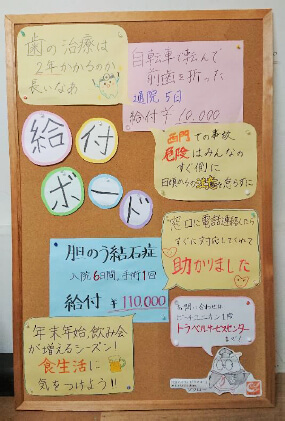 歯の治療は
2年かかるのか
長いなあ
自転車で転んで
前歯を折った
通院 5日
給付 ¥10,000
給付
ボード
西門での事故
危険はみんなの
すぐ側に
日頃からの注意を怠らずに
窓口に電話連絡したら
すぐに対応してくれて
助かりました
胆のう結石症
入院6日間、手術1回
給付 ¥110,000
年末年始、飲み会
が増えるシーズン!
食生活に
気をつけよう!!
お問い合わせは
トラベルサービスセンター
まで!